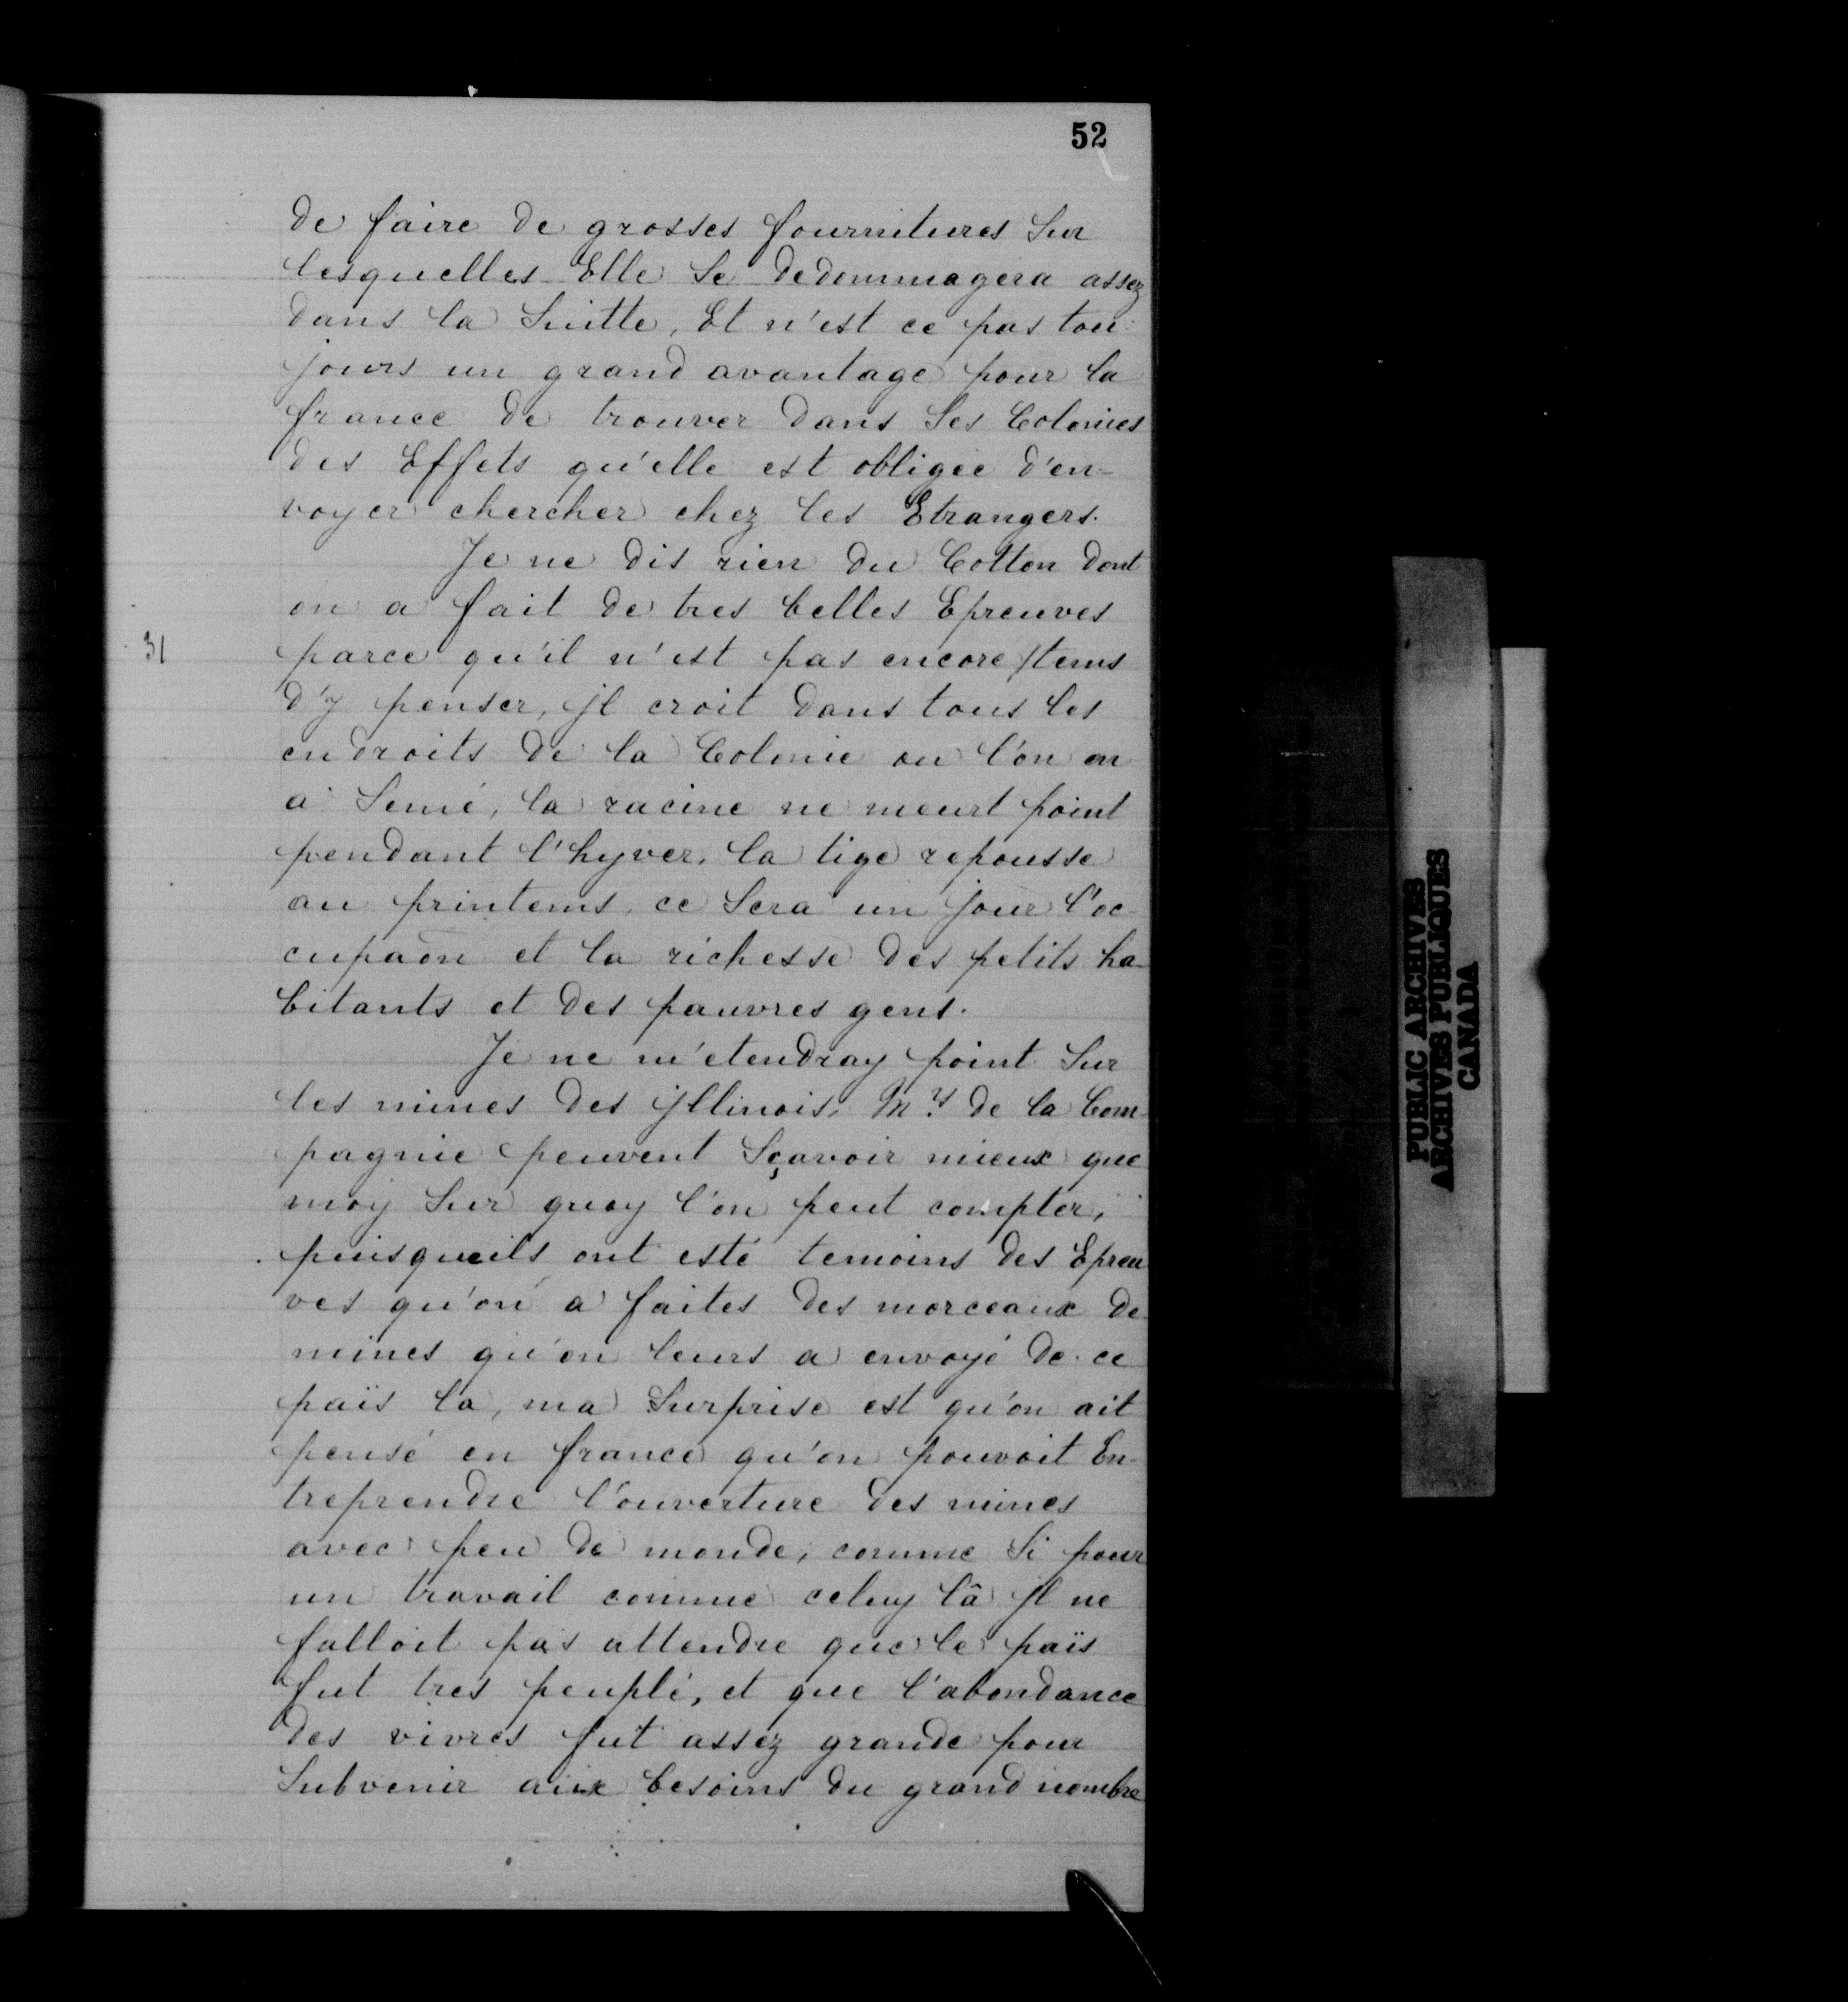 52
de faire de grosses fournitures Sur
lesquelles Elle Se dedommagera assez
dans la Suitte, Et n'est ce pas tou-
jours un grand avantage pour la
france de trouver dans Ses Colonies
des Effets qu'elle est obligée d'en-
voyer chercher chez les Etrangers.
Je ne dis rien du Cotton dont
on a fait de tres belles Epreuves
31
parce qu'il n'est pas encore /tems
d'y penser, jl croit dans tous les
endroits de la Colonie ou l'on en
a Semé, la racine ne meurt point
pendant l'hyver, la tige repousse
au printems, ce Sera un jour l'oc-
cupaõn et la richesse des petits ha-
bitants et des pauvres gens.
Je ne m'etendray point Sur
les mines des jllinois, Mrs de la Com-
pagnie peuvent Sçavoir mieux que
moy Sur quoy l'on peut compter,
puisqueils ont esté temoins des Epreu
ves qu'on a faites des morceaux de
mines qu'on leurs a envoyé de ce
païs la, ma Surprise est qu'on ait
pensé en france qu'on pouvoit En-
treprendre l'ouverture des mines
avec peu de monde, comme Si pour
un travail comme celuy lâ jl ne
falloit pas attendre que le païs
fut tres peuplé, et que l'abondance
des vivres fut assez grande pour
Subvenir aux besoins du grand nombre
PUBLIC ARCHIVES
ARCHIVES PUBLIQUES
CANADA